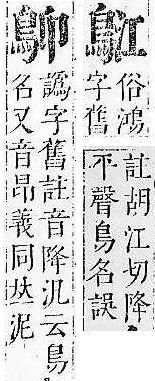 俗鴻
字舊
註胡江切降
不聲鳥名誤
譌字舊註音降汎云鳥
名又音昂義同夶泥